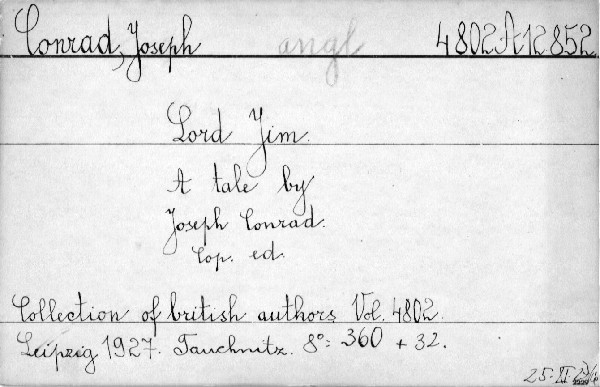 Conrad, Joseph angl 4802 A 12852
Lord Jim.
A tale by
Joseph Conrad.
Cop. ed.
Collection of british authors Vol. 4802.
Leipzig 1927. Tauchnitz. 8°: 360 + 32.
25. II.